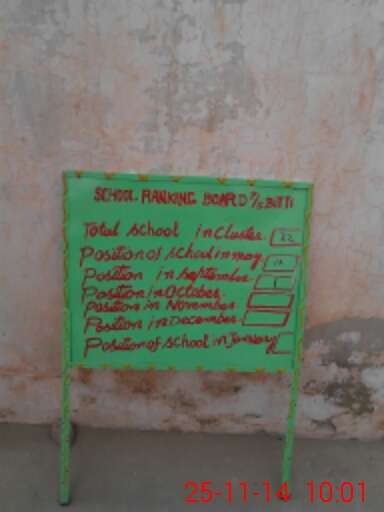 SCHOOL RANKING BOARD P/S BITTI
Total school in Cluster
Position of School in may
Position in September
Position in October
Position in November
Position in December
Position of School in January
25-11-14 10:01